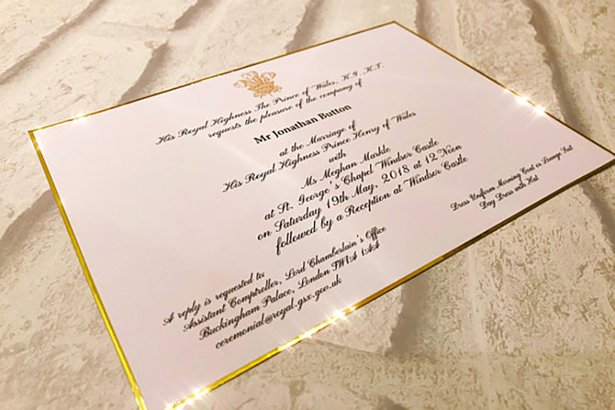 His Royal Highness The Prince of Wales, K.G., K.T.
requests the pleasure of the company of
Mr Jonathan Button
at the Marriage of
His Royal Highness Prince Henry of Wales
with
Ms Meghan Markle
at St. George's Chapel Windsor Castle
on Saturday 19th May, 2018 at 12 Noon
followed by a Reception at Windsor Castle
A reply is requested to:
Assistant Comptroller, Lord Chamberlain's Office
Buckingham Palace, London SW1A 1AA
ceremonial@royal.gsx.gov.uk
Dress Uniform Morning Coat or Lounge Suit
Day Dress with Hat